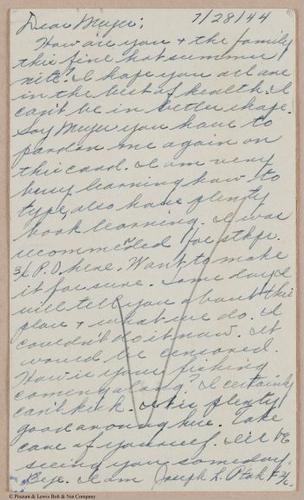 Dear Meyer; 7/28/44
How are you & the family
this fine hot summer
nite. I hope you all are
in the best of health. I
can't be in better shape.
Say Meyer you have to
pardon me again on
this card. I am very
busy learning how to
type, also have plenty
book learning. I was
recommended for
here. Want to make
it for sure. Some day I
will tell you about this
place & what we do. I
couldn't do it now. It
would be censored.
How is your fishing
coming along? I certainly
can't kick. It is plenty
good around here. Take
care of yourself. I'll be
seeing you someday.
I am Joseph L.
© Pitcairn & Lewis Bolt & Nut Company